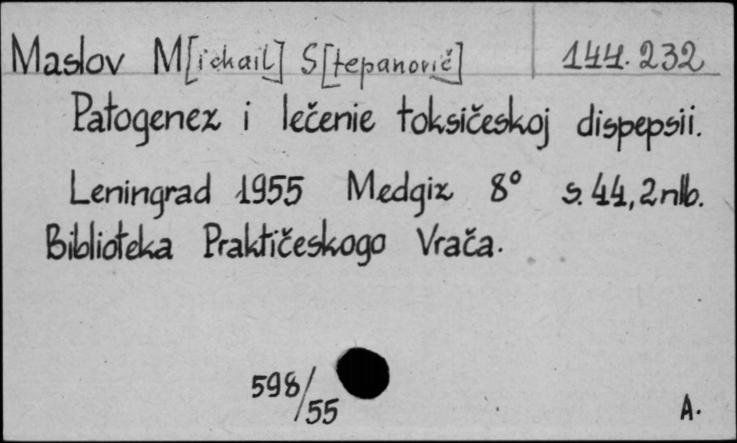 Maslov M[ichail] S[tepanovič] 144.232
Patogenez i lečenie toksičeskoj dispepsii.
Leningrad 1955 Medgiz 8° s. 44, 2 nlb.
Biblioteka Praktičeskogo Vrača.
598/55
A.